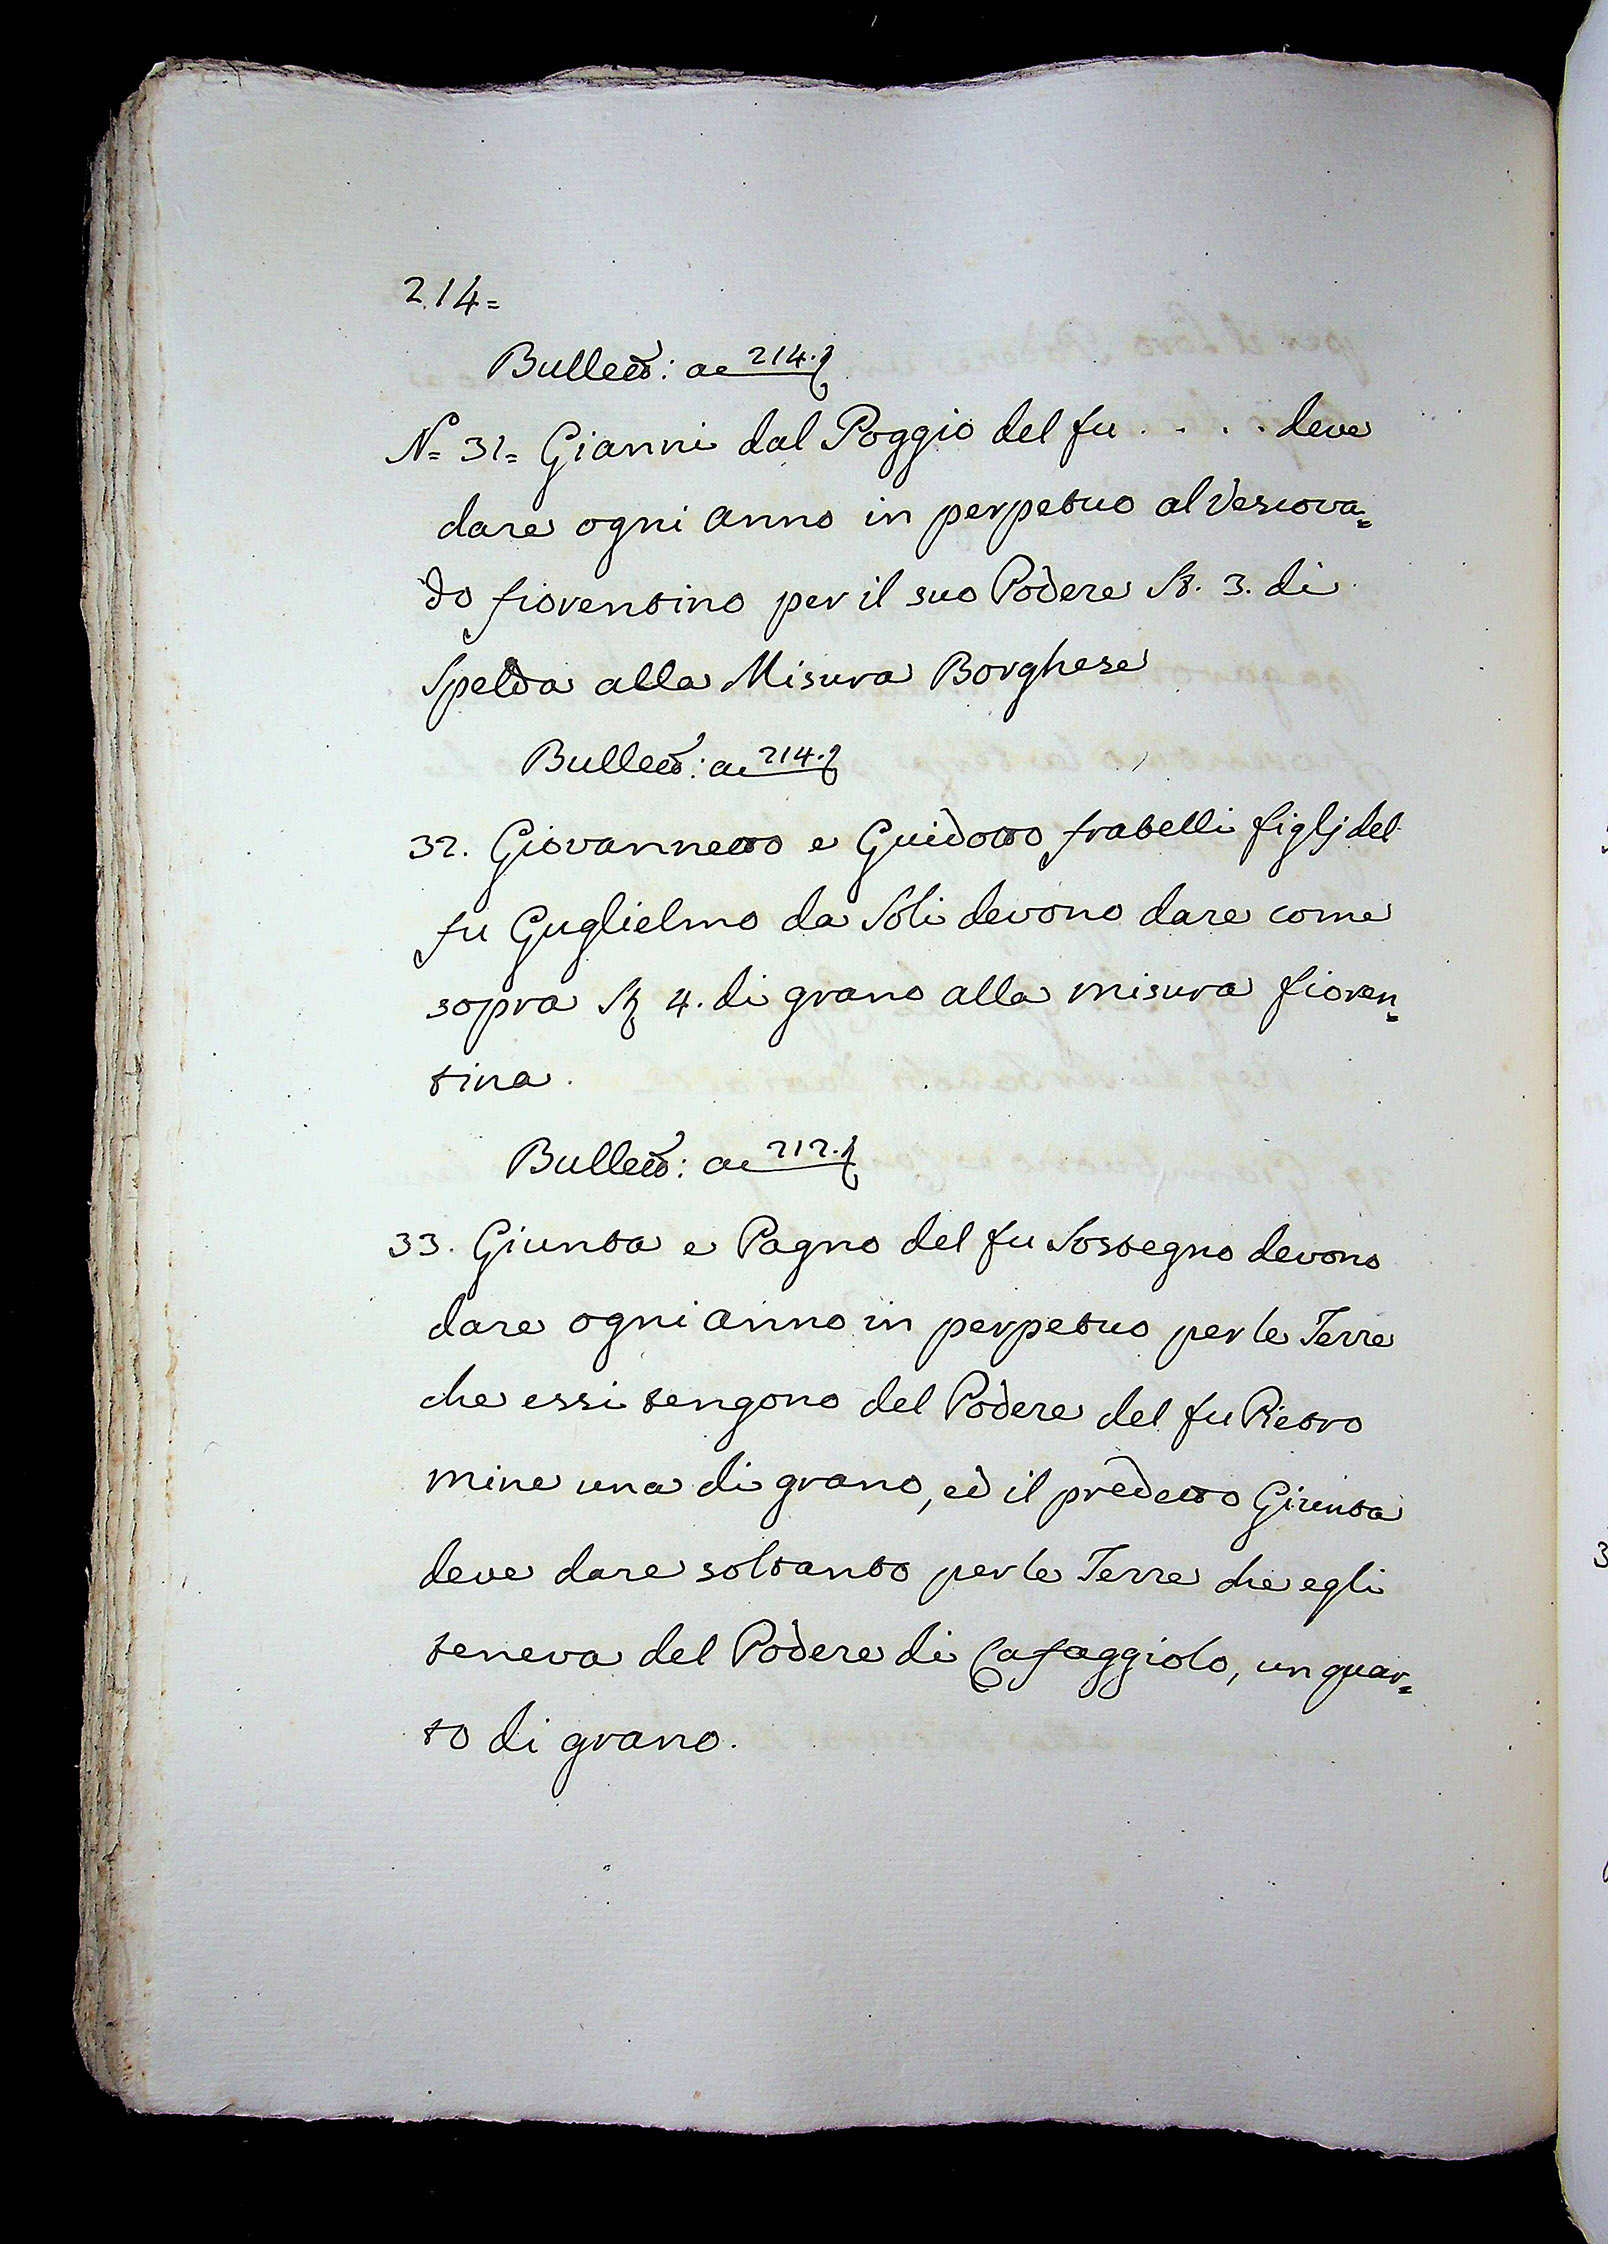 214=
Bullett: a c 214.
N= 31= Gianni dal Poggio del fu . . . . deve
dare ogni anno in perpetuo al Vescova=
do fiorentino per il suo Podere St. 3. di
Spelda alla Misura Borghese
Bullett: a c 214.
32. Giovannetto e Guidotto fratelli figlj del
fu Guglielmo da Soli devono dare come
sopra St 4. di grano alla misura fioren=
tina.
Bullett: a c 212.
33. Giunta e Pagno del fu Sostegno devono
dare ogni anno in perpetuo per le Terre
che essi tengono del Podere del fu Pietro
mine una di grano, ed il predetto Giunta
deve dare soltanto per le Terre che egli
teneva del Podere di Cafaggiolo, un quar=
to di grano.